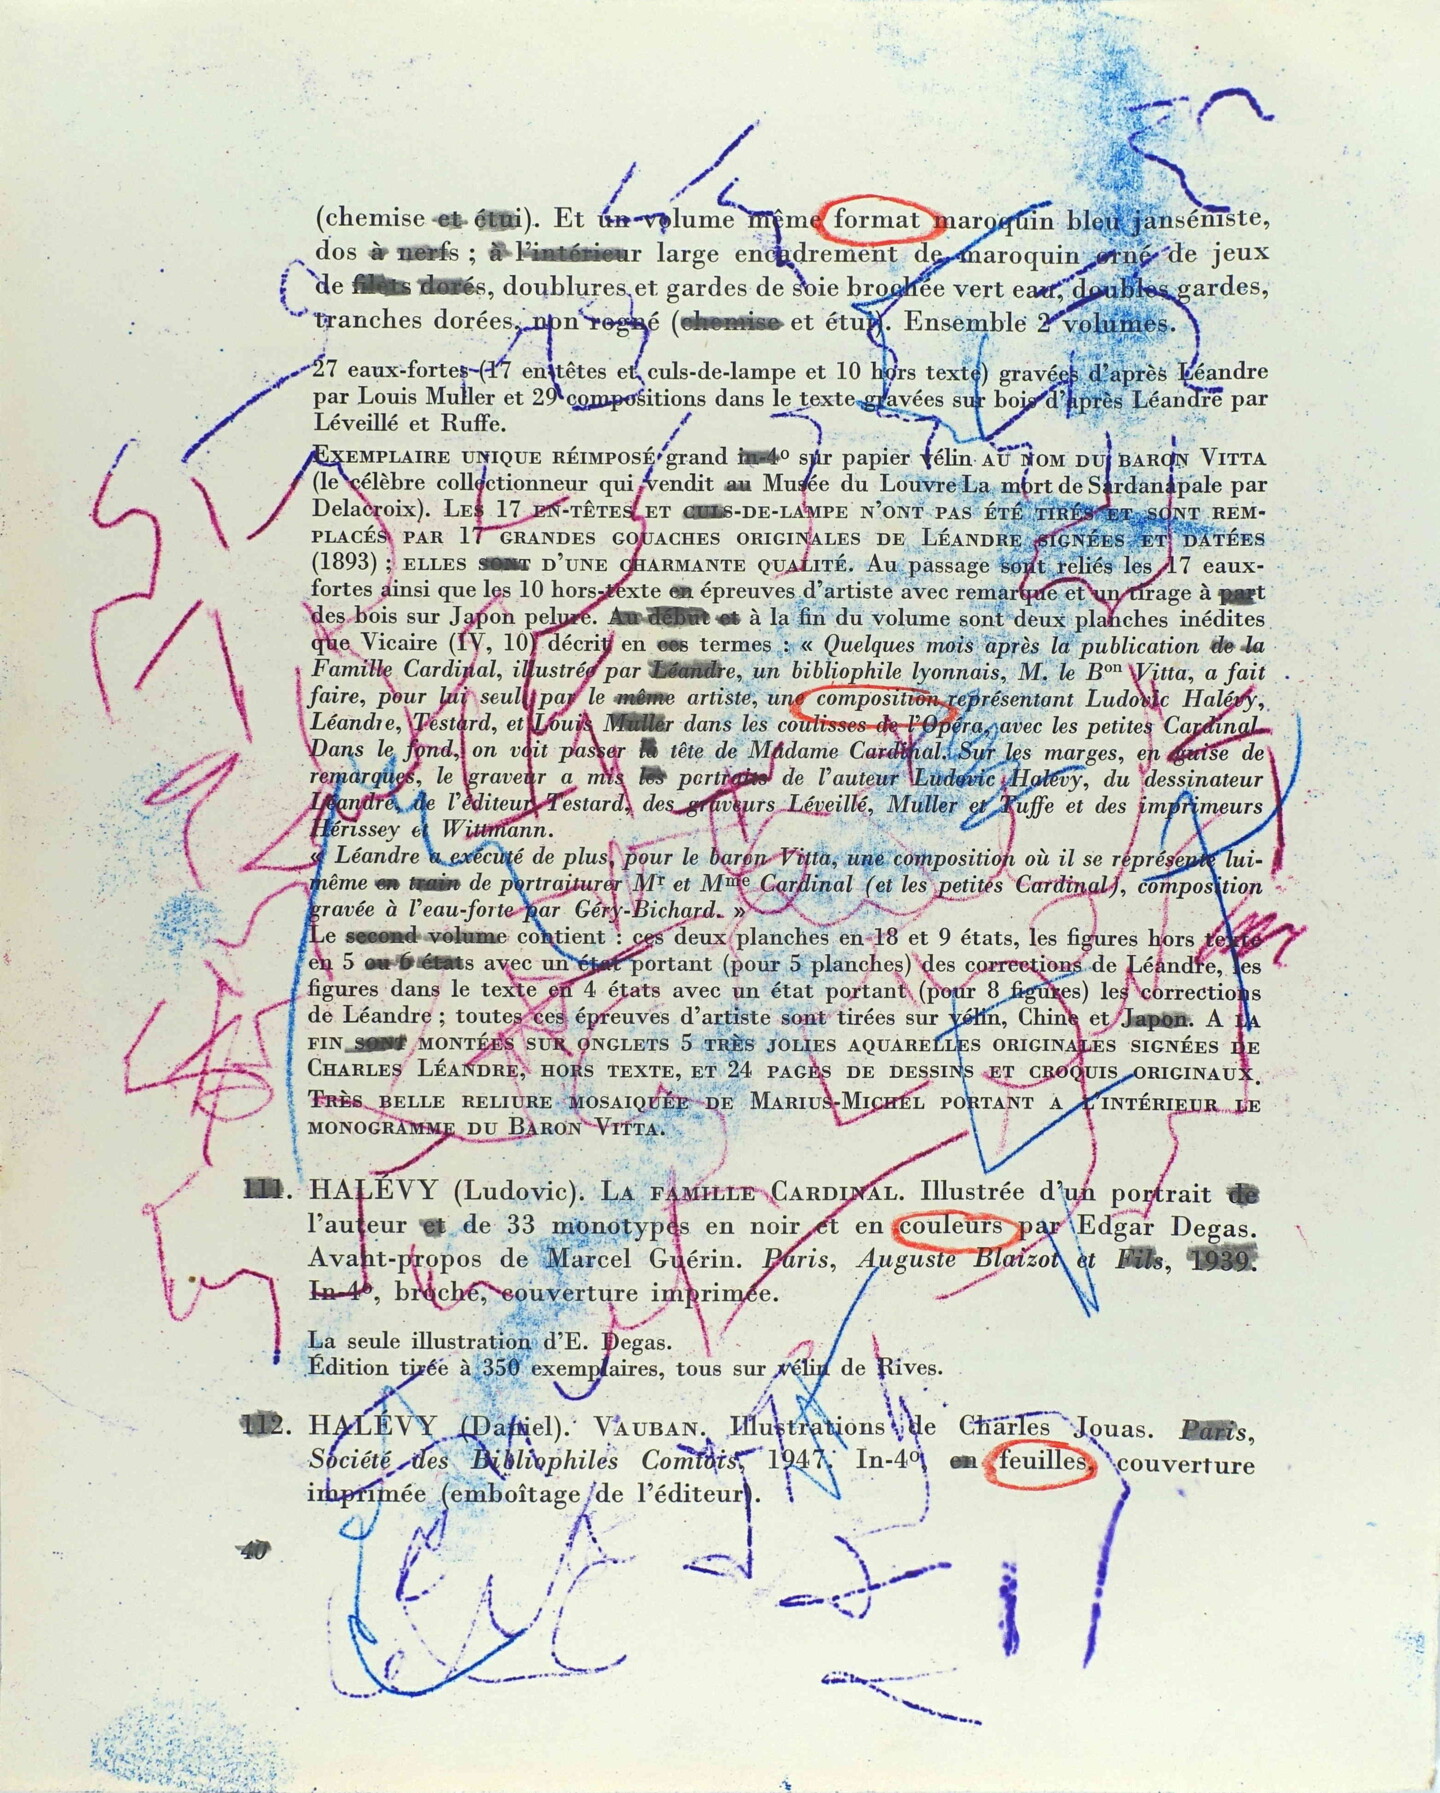 (chemise et étui). Et un volume même format maroquin bleu janséniste,
dos à nerfs ; à l'intérieur large encadrement de maroquin orné de jeux
de filets dorés, doublures et gardes de soie brochée vert eau, doubles gardes,
tranches dorées, non rogné (chemise et étui). Ensemble 2 volumes.
27 eaux-fortes (17 en-têtes et culs-de-lampe et 10 hors texte) gravées d'après Léandre
par Louis Muller et 29 compositions dans le texte gravées sur bois d'après Léandre par
Léveillé et Ruffe.
EXEMPLAIRE UNIQUE RÉIMPOSÉ grand in-4º sur papier vélin AU NOM DU BARON VITTA
(le célèbre collectionneur qui vendit au Musée du Louvre La mort de Sardanapale par
Delacroix). LES 17 EN-TÊTES ET CULS-DE-LAMPE N'ONT PAS ÉTÉ TIRÉS ET SONT REM-
PLACÉS PAR 17 GRANDES GOUACHES ORIGINALES DE LÉANDRE SIGNÉES ET DATÉES
(1893) ; ELLES SONT D'UNE CHARMANTE QUALITÉ. Au passage sont reliés les 17 eaux-
fortes ainsi que les 10 hors-texte en épreuves d'artiste avec remarque et un tirage à part
des bois sur Japon pelure. Au début et à la fin du volume sont deux planches inédites
que Vicaire (IV, 10) décrit en ces termes : « Quelques mois après la publication de la
Famille Cardinal, illustrée par Léandre, un bibliophile lyonnais, M. le Bon Vitta, a fait
faire, pour lui seul, par le même artiste, une composition représentant Ludovic Halévy,
Léandre, Testard, et Louis Muller dans les coulisses de l'Opéra, avec les petites Cardinal.
Dans le fond, on voit passer la tête de Madame Cardinal. Sur les marges, en guise de
remarques, le graveur a mis les portraits de l'auteur Ludovic Halévy, du dessinateur
Léandre, de l'éditeur Testard, des graveurs Léveillé, Muller et Tuffe et des imprimeurs
Hérissey et Wittmann.
« Léandre a exécuté de plus, pour le baron Vitta, une composition où il se représente lui-
même en train de portraiturer Mr et Mme Cardinal (et les petites Cardinal), composition
gravée à l'eau-forte par Géry-Bichard. »
Le second volume contient : ces deux planches en 18 et 9 états, les figures hors texte
en 5 ou 6 états avec un état portant (pour 5 planches) des corrections de Léandre, les
figures dans le texte en 4 états avec un état portant (pour 8 figures) les corrections
de Léandre ; toutes ces épreuves d'artiste sont tirées sur vélin, Chine et Japon. A LA
FIN SONT MONTÉES SUR ONGLETS 5 TRÈS JOLIES AQUARELLES ORIGINALES SIGNÉES DE
CHARLES LÉANDRE, HORS TEXTE, ET 24 PAGES DE DESSINS ET CROQUIS ORIGINAUX.
TRÈS BELLE RELIURE MOSAIQUÉE DE MARIUS-MICHEL PORTANT A L'INTÉRIEUR LE
MONOGRAMME DU BARON VITTA.
111. HALÉVY (Ludovic). LA FAMILLE CARDINAL. Illustrée d'un portrait de
l'auteur et de 33 monotypes en noir et en couleurs par Edgar Degas.
Avant-propos de Marcel Guérin. Paris, Auguste Blaizot et Fils, 1939.
In-4º, broché, couverture imprimée.
La seule illustration d'E. Degas.
Édition tirée à 350 exemplaires, tous sur vélin de Rives.
112. HALÉVY (Daniel). VAUBAN. Illustrations de Charles Jouas. Paris,
Société des Bibliophiles Comtois, 1947. In-4º, en feuilles, couverture
imprimée (emboîtage de l'éditeur).
40